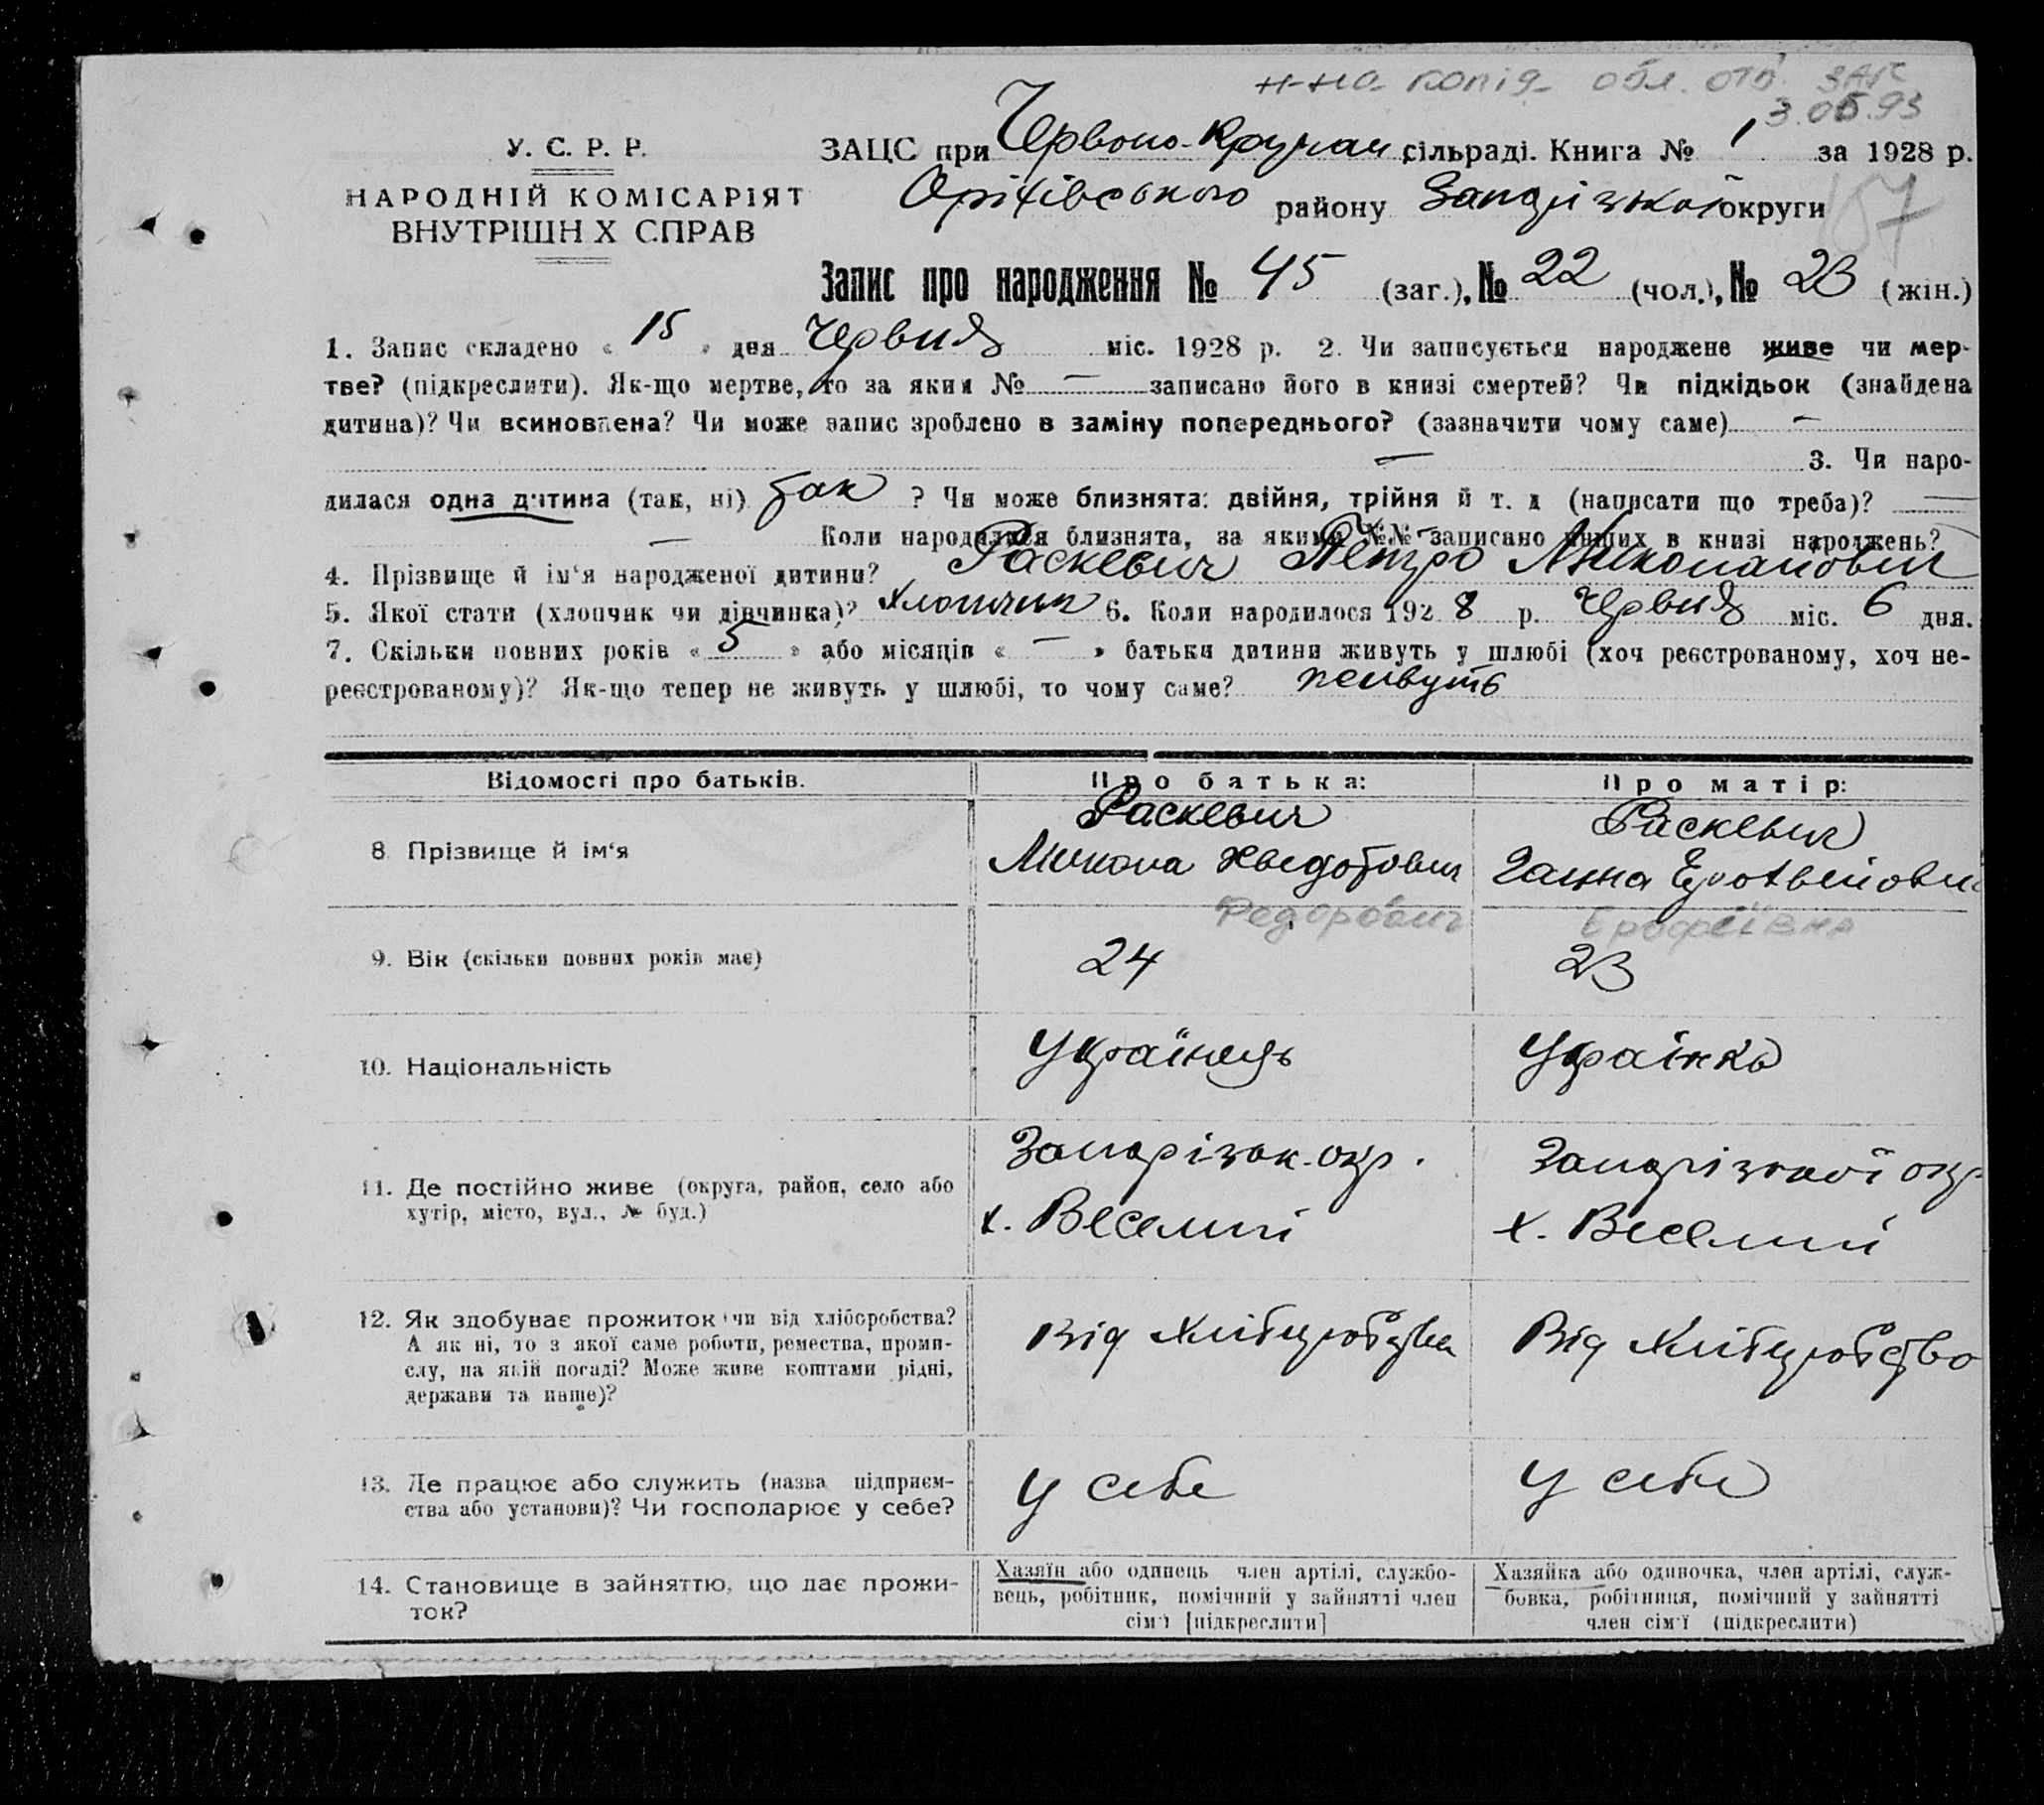 н-на копія обл. отд. ЗАГС
3.05.93
У. С. Р. Р.
НАРОДНІЙ КОМІСАРІЯТ
ВНУТРІШН Х СПРАВ
ЗАЦС при Червоно- сільраді. Книга № 1 за 1928 р.
Оріхівського району Запорізької округи
167
Запис про народження № 45 (заг.), № 22 (чол.), № 23 (жін.)
1. Запис складено « 15 » дня Червня міс. 1928 р. 2. Чи записується народжене живе чи мер-
тве? (підкреслити). Як-що мертве, то за яким № — записано його в книзі смертей? Чи підкідьок (знайдена
дитина)? Чи всиновлена? Чи може запис зроблено в заміну попереднього? (зазначити чому саме) —
— 3. Чи наро-
дилася одна дитина (так, ні) так ? Чи може близнята: двійня, трійня й т. д (написати що треба)? —
— Коли народилися близнята, за якими №№ записано инших в книзі народжень? —
4. Прізвище й ім'я народженої дитини? Раскевич Петро Миколайович
5. Якої стати (хлопчик чи дівчинка)? хлопчик 6. Коли народилося 1928 р. Червня міс. 6 дня.
7. Скільки повних років « 5 » або місяців « — » батьки дитини живуть у шлюбі (хоч реєстрованому, хоч не-
реєстрованому)? Як-що тепер не живуть у шлюбі, то чому саме? живуть
Відомості про батьків. Про батька: Про матір:
8 Прізвище й ім'я
Раскевич
Микола Хведотович
Федорович
Раскевич
Ганна
Єрофеївна
9. Вік (скільки повних років має) 24 23
10. Національність Українець Українка
11. Де постійно живе (округа, район, село або
хутір, місто, вул., № буд.)
Запорізьк. окр.
х. Веселий
Запорізької окр
х. Веселий
12. Як здобуває прожиток чи від хліборобства?
А як ні, то з якої саме роботи, ремества, проми-
слу, на якій посаді? Може живе коштами рідні,
держави та инше)?
Від Хліборобства
Від Хліборобство
13. Де працює або служить (назва підприєм-
ства або установи)? Чи господарює у себе?
У себе
У себе
14. Становище в зайняттю, що дає прожи-
ток?
Хазяїн або одинець член артілі, службо-
вець, робітник, помічний у зайнятті член
сім'ї [підкреслити]
Хазяйка або одиночка, член артілі, служ-
бовка, робітниця, помічний у зайнятті
член сім'ї (підкреслити)